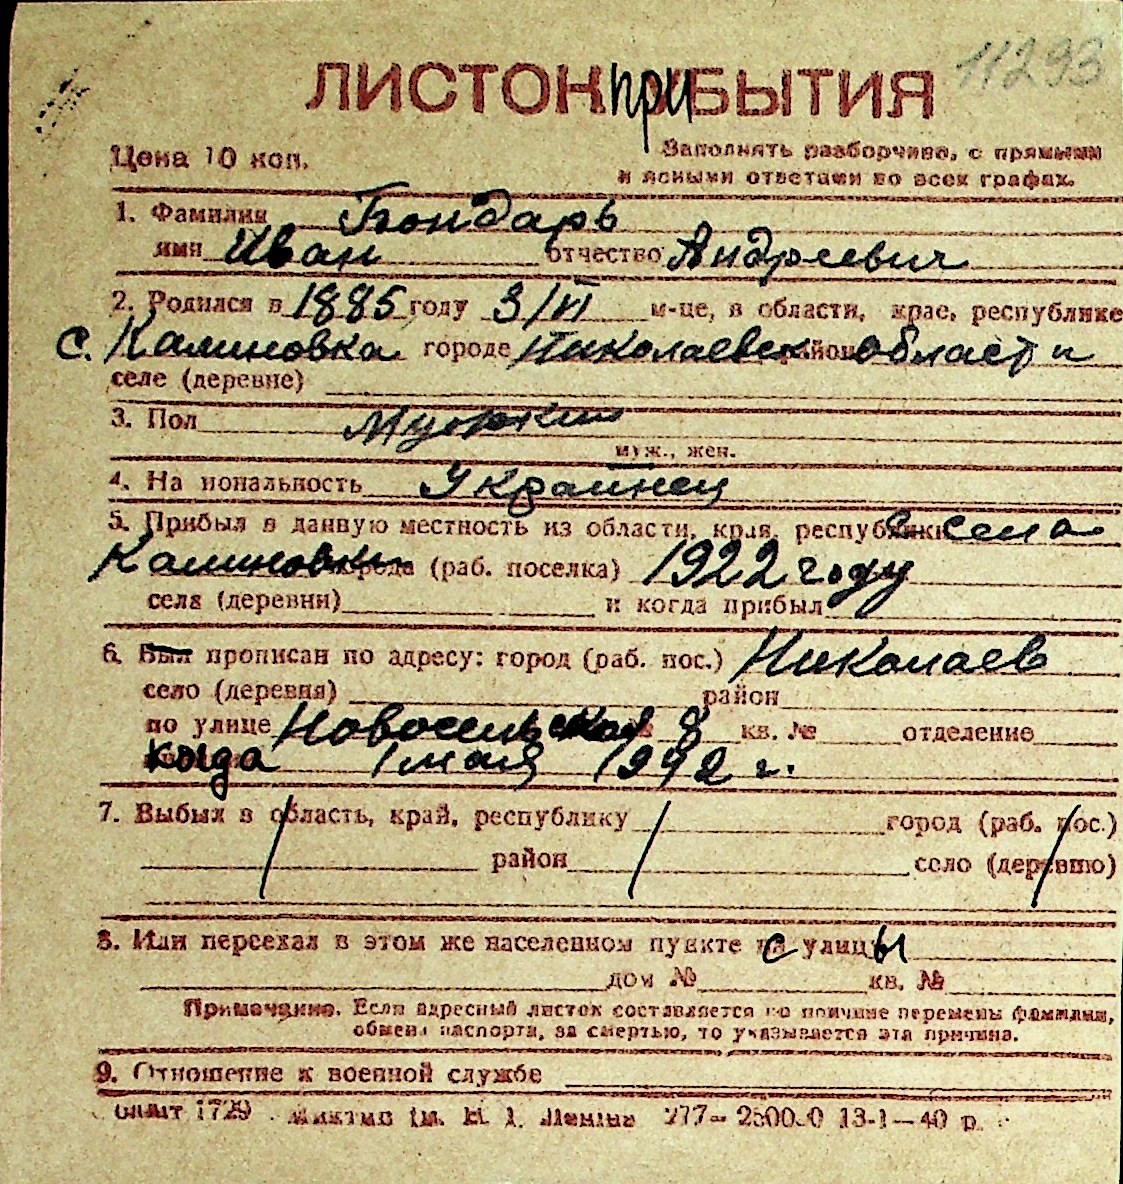 11293
ЛИСТОК прибЫТИЯ
Цена 10 коп.
Заполнять разборчиво, с прямыми
и ясными ответами во всех графах.
1. Фамилия Бондарь
имя Иван отчество Андреевич
2. Родился в 1885 году 3/VI м-це, в области, крае, республике
с. Калиновка городе Николаевск районе области
селе (деревне)
3. Пол Мужкий
муж., жен.
4. Национальность Украинец
5. Прибыл в данную местность из области, края, республики села
Калиновки города (раб. поселка) 1922 году
села (деревни) и когда прибыл
6. Был прописан по адресу: город (раб. пос.) Николаев
село (деревня) район
по улице Новосельская № 8 кв. № отделение
когда 1 мая 1942 г.
7. Выбыл в область, край, республику город (раб. пос.)
район село (деревню)
8. Или переехал в этом же населенном пункте с улицы
дом № кв. №
Примечание. Если адресный листок составляется по причине перемены фамилии,
обмена паспорта, за смертью, то указывается эта причина.
9. Отношение к военной службе
1729 Ленина 277— 13-1—40 р.